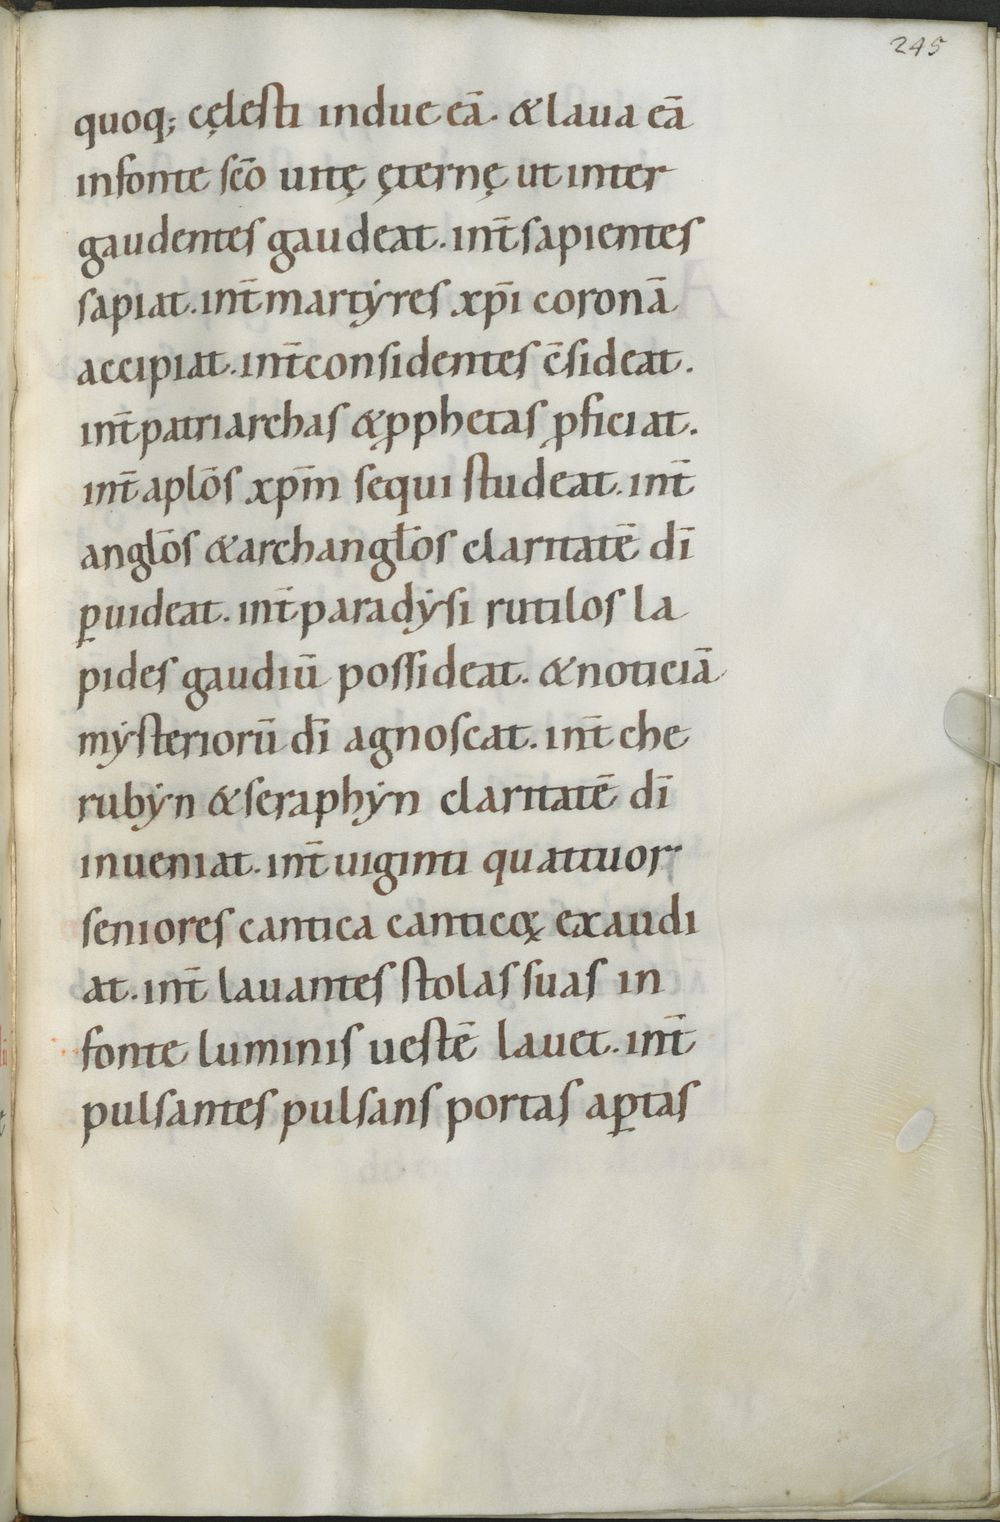 245
quoq; cęlesti indue eā. & laua eā
in fonte sc̄o uitę ęternę ut inter
gaudentes gaudeat. int̄ sapientes
sapiat. int̄ martẏres xp̄i coronā
accipiat. int̄ considentes c̄sideat.
int̄ patriarchas & ꝓphetas ꝓficiat.
int̄ aplōs xp̄m sequi studeat. int̄
angl̄os & archangl̄os claritatē dī
ꝑuideat. int̄ paradẏsi rutilos la
pides gaudiū possideat. & noticiā
mẏsteriorū dī agnoscat. int̄ che
rubẏn & seraphẏn claritatē dī
inueniat. int̄ uiginti quattuor
seniores cantica canticoꝝ exaudi
at. int̄ lauantes stolas suas in
fonte luminis uestē lauet. int̄
pulsantes pulsans portas aꝑtas